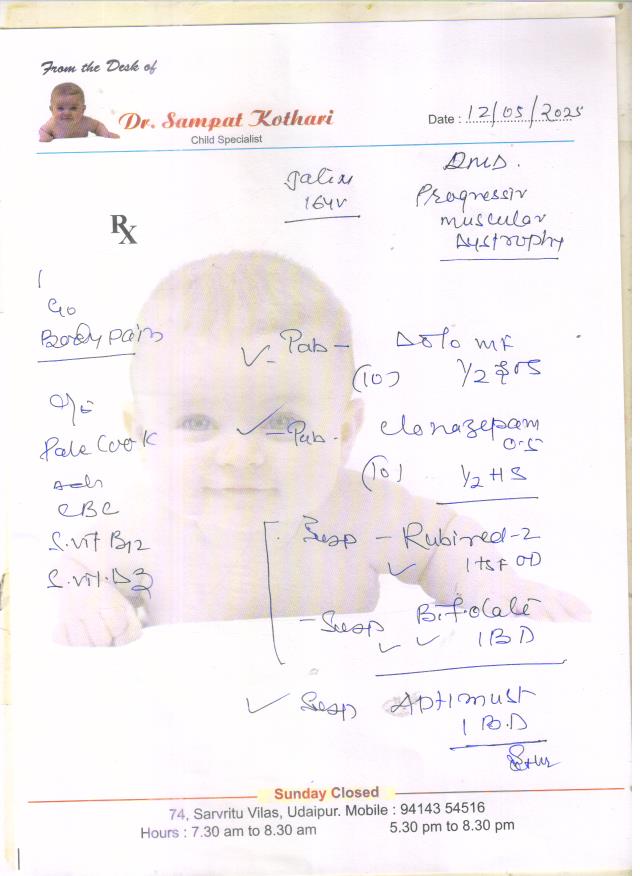 From the Desk of
Dr. Sampat Kothari
Child Specialist
Date : 12/05/2025
16 yr
DMD.
Progressiv
muscular
Dystrophy
Rx
C/o
Body pain
Tab - Dolo MF
(10) 1/2 SOS
O/E
Pale Look
Tab. Clonazepam
0.5
(10) 1/2 HS
Adv
CBC
S. vit B12
S. vit. D3
Susp - Rubired-2
1 tsf OD
- Susp Bifolate
1 BD
Susp Aptimust
1 B.D
Sunday Closed
74, Sarvritu Vilas, Udaipur. Mobile : 94143 54516
Hours : 7.30 am to 8.30 am 5.30 pm to 8.30 pm